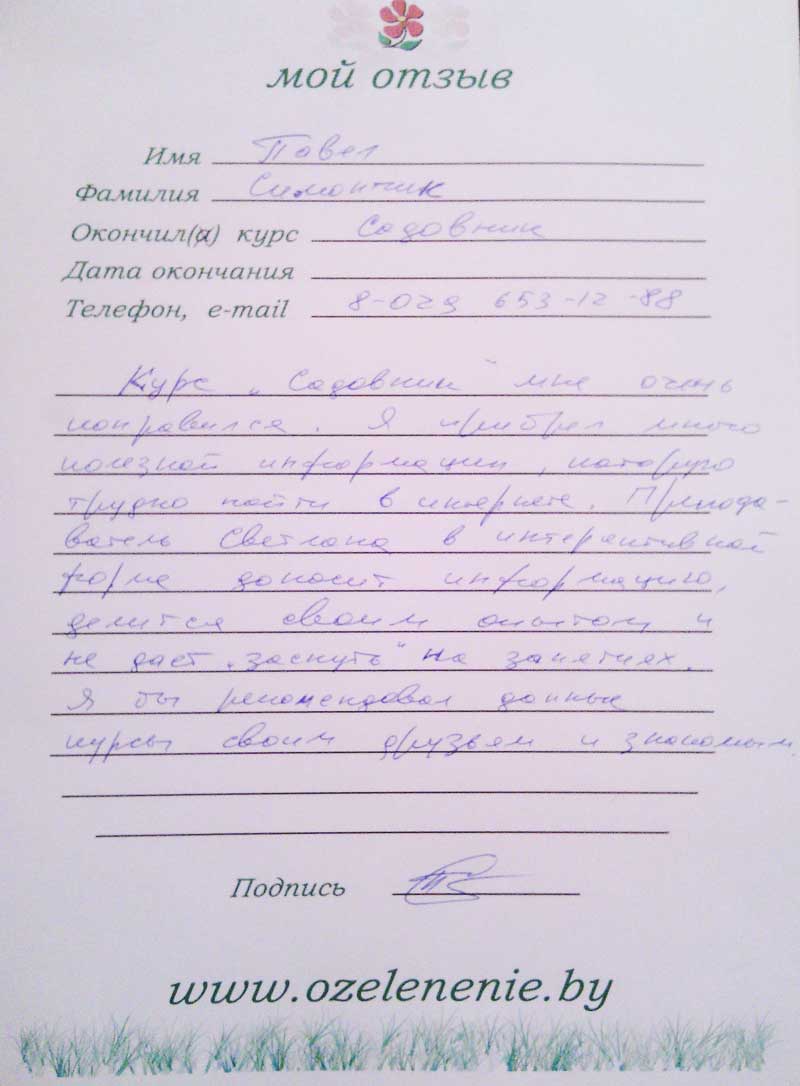 мой отзыв
Имя Павел
Фамилия Симончик
Окончил(а) курс Садовник
Дата окончания
Телефон, e-mail 8-029 653-12-88
Курс „Садовник“ мне очень
понравился. Я приобрел много
полезной информации, которую
трудно найти в интернете. Препода-
ватель Светлана в интерактивной
форме доносит информацию,
делится своим опытом и
не даст „заснуть“ на занятиях.
Я бы рекомендовал данные
курсы своим друзьям и знакомым.
Подпись
www.ozelenenie.by